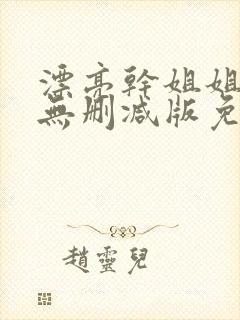 漂亮幹姐姐
無刪減版免
趙靈兒